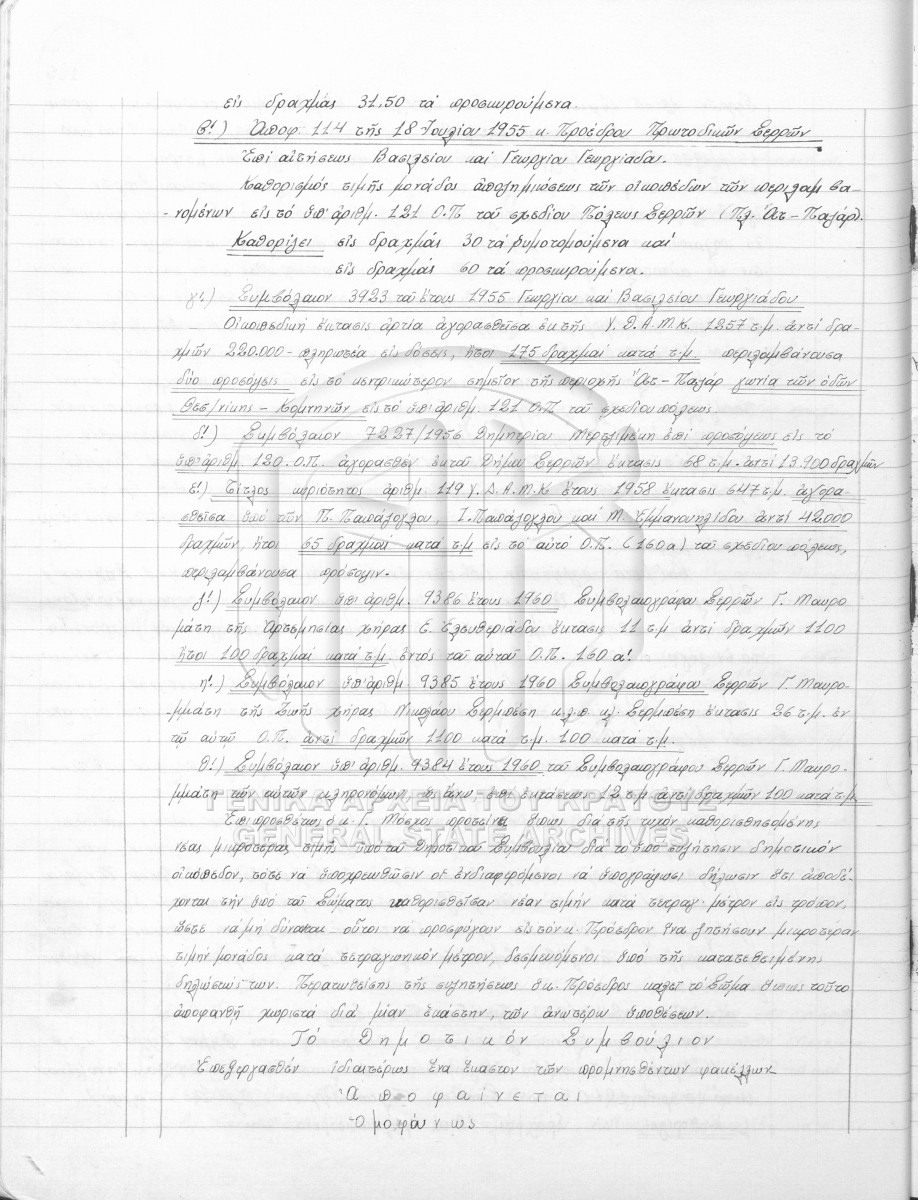 εἰς δραχμάς 31,50 τά προσκυρούμενα.
β'.) Ἀποφ. 114 τῆς 18 Ἰουλίου 1955 κ. Προέδρου Πρωτοδικῶν Σερρῶν
Ἐπί αἰτήσεως Βασιλείου καί Γεωργίου Γεωργιάδου.
Καθορισμός τιμῆς μονάδος ἀποζημιώσεως τῶν οἰκοπέδων τῶν περιλαμβα-
-νομένων εἰς τό ὑπ' ἀριθμ. 121 Ο.Π τοῦ σχεδίου Πόλεως Σερρῶν (Πλ. Ἀτ-Παζάρ).
Καθορίζει εἰς δραχμάς 30 τά ρυμοτομούμενα καί
εἰς δραχμάς 60 τά προσκυρούμενα.
γ'.) Συμβόλαιον 3923 τοῦ ἔτους 1955 Γεωργίου καί Βασιλείου Γεωργιάδου
Οἰκοπεδική ἔκτασις ἀρτία ἀγορασθεῖσα ἐκ τῆς Υ.Δ.Α.Μ.Κ. 1257 τ.μ. ἀντί δρα-
χμῶν 220.000- πληρωτέα εἰς δόσεις, ἤτοι 175 δραχμαί κατά τ.μ. περιλαμβάνουσα
δύο προσόψεις εἰς τό κεντρικώτερον σημεῖον τῆς περιοχῆς Ἀτ-Παζάρ γωνία τῶν ὁδῶν
Θεσ/νίκης - Κομνηνῶν εἰς τό ὑπ' ἀριθμ. 121 Ο.Π τοῦ σχεδίου πόλεως.
δ'.) Συμβόλαιον 7227/1956 Δημητρίου Μερτζιμέκη ἐπί προσόψεως εἰς τό
ὑπ' ἀριθμ. 120. Ο.Π. ἀγορασθέν ἐκ τοῦ Δήμου Σερρῶν ἔκτασις 68 τ.μ. ἀντί 13.900 δραχμῶν
ε'.) Τίτλος κυριότητος ἀριθμ. 119 Υ.Δ.Α.Μ.Κ ἔτους 1958 ἔκτασις 647 τ.μ. ἀγορα-
σθεῖσα ὑπό τῶν Π. Παπάζογλου, Ι. Παπάζογλου καί Μ. Ἐμμανουηλίδου ἀντί 42.000
δραχμῶν, ἤτοι 65 δραχμαί κατά τ.μ εἰς τό αὐτό Ο.Π. (160α) τοῦ σχεδίου πόλεως,
περιλαμβάνουσα πρόσοψιν.
ζ'.) Συμβόλαιον ὑπ' ἀριθμ. 9386 ἔτους 1960 Συμβολαιογράφου Σερρῶν Γ. Μαυρο
μάτη τῆς Ἀρτεμησίας χήρας Ε. Ἐλευθεριάδου ἔκτασις 11 τ.μ ἀντί δραχμῶν 1100
ἤτοι 100 δραχμαί κατά τ.μ. ἐντός τοῦ αὐτοῦ Ο.Π. 160 α'.
η'.) Συμβόλαιον ὑπ' ἀριθμ. 9385 ἔτους 1960 Συμβολαιογράφου Σερρῶν Γ. Μαυρο-
-μμάτη τῆς Ζωῆς χήρας Νικολάου Σερμπέση κ.λ.π. κλ. Σερμπέση ἔκτασις 26 τ.μ. ἐν
τῷ αὐτῷ Ο.Π. ἀντί δραχμῶν 1100 κατά τ.μ. 100 κατά τ.μ.
θ'.) Συμβόλαιον ὑπ' ἀριθμ. 9384 ἔτους 1960 τοῦ Συμβολαιογράφου Σερρῶν Γ. Μαυρο-
μμάτη τῶν αὐτῶν κληρονόμων, ὡς ἄνω, ἐπί ἐκτάσεως 12 τ.μ ἀντί δραχμῶν 100 κατά τ.μ.
ΓΕΝΙΚΑ ΑΡΧΕΙΑ ΤΟΥ ΚΡΑΤΟΥΣ
Ἐπιπροσθέτως ὁ κ. Γ. Μόσχος προτείνει ὅπως διά τῆς τυχόν καθορισθησομένης
GENERAL STATE ARCHIVES
νέας μικροτέρας τιμῆς ὑπό τοῦ Δημοτικοῦ Συμβουλίου διά τό ὑπό συζήτησιν δημοτικόν
οἰκόπεδον, τότε νά ὑποχρεωθῶσιν οἱ ἐνδιαφερόμενοι νά ὑπογράψωσι δήλωσιν ὅτι ἀποδέ-
χονται τήν ὑπό τοῦ Σώματος καθορισθεῖσαν νέαν τιμήν κατά τετραγ. μέτρον εἰς τρόπον,
ὥστε νά μή δύνανται οὗτοι νά προσφύγουν εἰς τόν κ. Πρόεδρον ἵνα ζητήσουν μικροτέραν
τιμήν μονάδος κατά τετραγωνικόν μέτρον, δεσμευόμενοι ὑπό τῆς κατατεθειμένης
δηλώσεώς των. Περατωθείσης τῆς συζητήσεως ὁ κ. Πρόεδρος καλεῖ τό Σῶμα ὅπως τοῦτο
ἀποφανθῆ χωριστά διά μίαν ἑκάστην, τῶν ἀνωτέρω ὑποθέσεων.
Τό Δημοτικόν Συμβούλιον
Ἐπεξεργασθέν ἰδιαιτέρως ἕνα ἕκαστον τῶν προμνησθέντων φακέλλων
Ἀποφαίνεται
Ὁμοφώνως